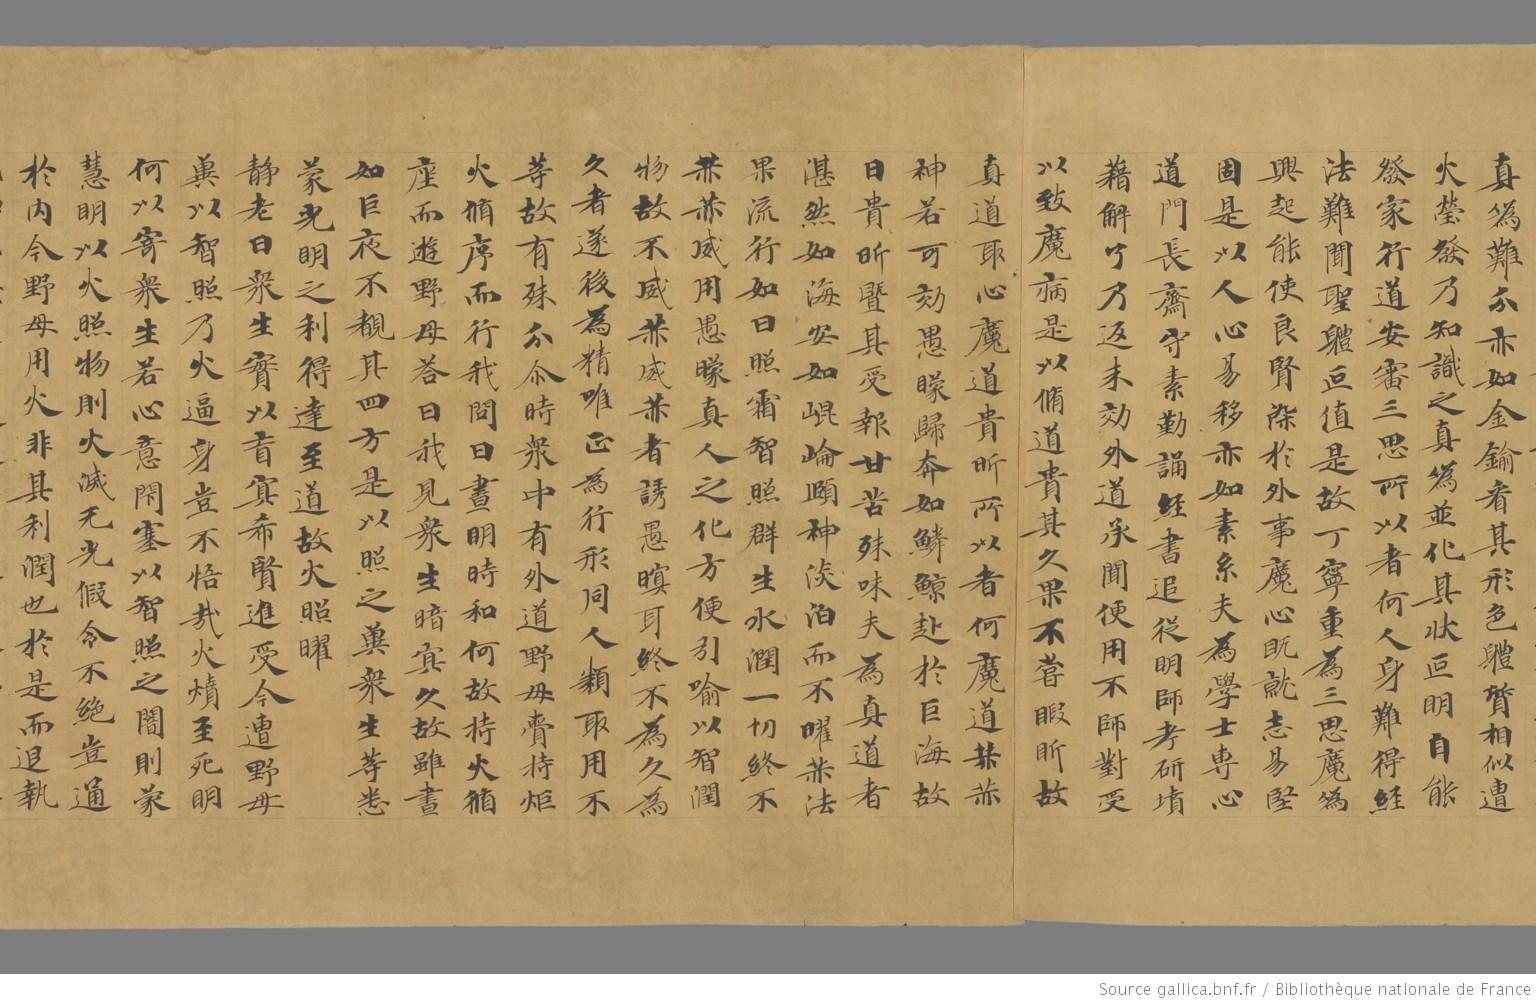 真為難分亦如金鍮者其形色軆質相似遭
火瑩發乃知識之真為並化其状叵明自能
發家行道安審三思所以者何人身難得経
法難聞聖軆叵值是故丁寧重為三思魔為
興起能使良賢染於外事魔心既就志易堅
固是以人心易移亦如素糸夫為學士専心
道門長齋守素勤誦経書追従明師考研墳
藉解了乃返未効外道承聞便用不師對受
以致魔病是以脩道貴其久果不甞暇昕故
真道取心魔道貴昕所以者何魔道恭恭
神若可効愚矇歸奔如鱗鯨赴於巨海故
日貴昕暨其受報甘苦殊味夫為真道者
湛然如海安如崐崘頤神淡泊而不曜恭法
果流行如日照霜智照群生水潤一切終不
恭恭威用愚矇真人之化方便引喻以智潤
物故不威恭威恭者誘愚瞑耳終不為久為
久者遂後為精唯正為行形同人類取用不
等故有殊分尒時衆中有外道野母賷持炬
火脩序而行我問曰晝明時和何故持火循
座而遊野母荅曰我見衆生暗㝠久故雖晝
如巨夜不覩其四方是以照之兾衆生等悉
蒙光明之利得達至道故火照曜
静老曰衆生實以盲㝠希賢進受今遭野母
兾以智照乃火逼身豈不悟哉火燌至死明
何以寄衆生若心意閇塞以智照之闇則蒙
慧明以火照物則火滅无光假令不絶豈通
於内今野母用火非其利潤也於是而退執